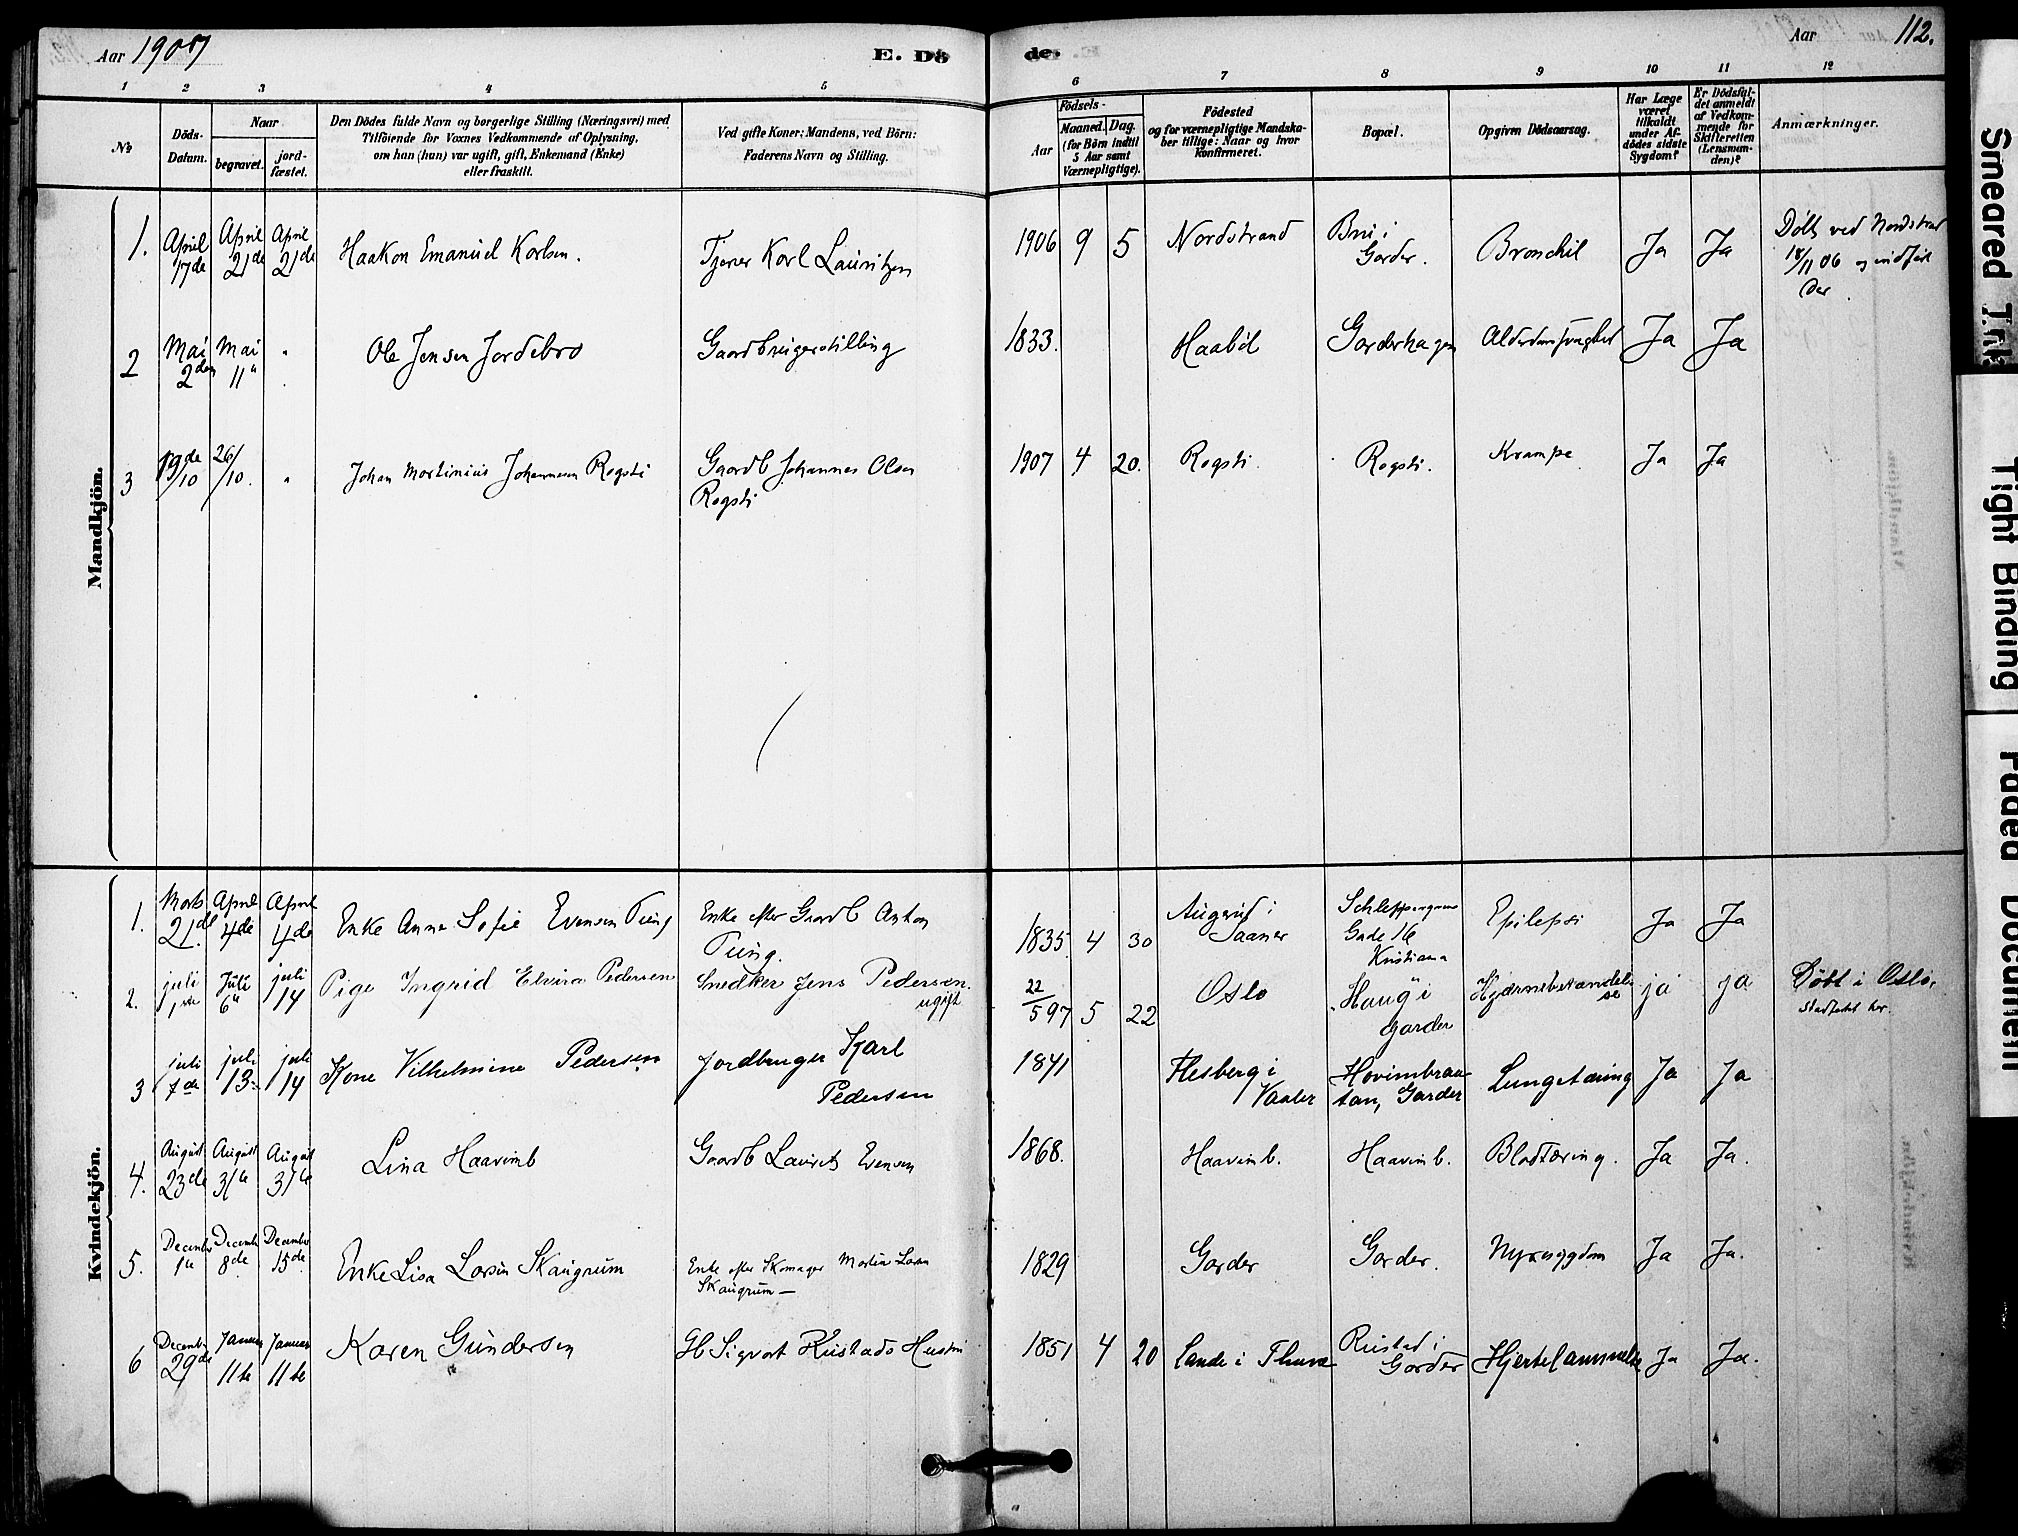 Aar 1907
E. Dö
de.
Aar
112.
1 2 3 4 5 6 7 8 9 10 11 12
№
Döds-
Datum.
Naar
begravet.
jord-
fæstet.
Den Dödes fulde Navn og borgerlige Stilling (Næringsvei) med
Tilföiende for Voxnes Vedkommende af Oplysning,
om han (hun) var ugift, gift, Enkemand (Enke)
eller fraskilt.
Ved gifte Koner: Mandens, ved Börn:
Faderens Navn og Stilling.
Födsels-
Aar
Maaned. Dag.
(for Börn indtil
5 Aar samt
Værnepligtige).
Födested
og for værnepligtige Mandska-
ber tillige: Naar og hvor
konfirmeret.
Bopæl.
Opgiven Dödsaarsag.
Har Læge
været
tilkaldt
under Af-
dödes sidste
Sygdom?
Er Dödsfal-
det anmeldt
af Vedkom-
mende for
Skifteretten
(Lensman-
den)?
Anmærkninger.
Mandkjön.
1. April 17de April 21de April 21de Haakon Emanuel Karlsen. Tjener Karl Lauritzen 1906 9 5 Nordstrand Bru i Garder. Bronchit Ja Ja Døbt ved Nordstrand
18/11 06 og indført
der.
2 Mai 2den Mai 11te " Ole Jensen Jordebro Gaardbrugerstilling 1833. Haabøl Garderhagen Alderdomssvaghed Ja Ja
3 19de/10 26/10. " Johan Martinius Johannesen Rogsti Gaardb Johannes Olsen
Rogsti
1907 4 20. Rogsti. Rogsti. Krampe Ja Ja
Kvindekjön.
1. Marts 21de April 4de April 4de Enke Anne Sofie Evensen Tung Enke efter Gaardb Anton
Tung.
1835 4 30 Augerud i
Saaner
Gade 16
Kristiania
Epilepsi Ja Ja
2. juli 1ste Juli 6te juli 14 Pige Ingrid Elvira Pedersen Snedker Jens Pedersen.
ugift
22/5 97 5 22 Oslo "Haug" i
Garder
Hjernebetændel-
se
ja ja Døbt i Oslo,
Stadfæstet her.
3 juli 7de juli 13. juli 14 Kone Vilhelmine Pedersen Jordbruger Karl
Pedersen
1841 Flesberg i
Vaaler
Hovimbraa-
tan, Garder
Lungetæring Ja Ja
4. August 23de August 31te August 31te Lina Haavimb Gaardb Laurits Evensen 1868. Haavimb. Haavimb. Blodtæring. Ja Ja.
5. December 1te December 8de December 15de Enke Lisa Larsen Skaugrum Enke efter Skomager Martin Larsen
Skaugrum —
1829 Garder Garder. Nyresygdom Ja Ja.
6 December 29de Januar 11te Januar 11te Karen Gundersen Gb Sigvart Rustads Hustru 1851 4 20 Sande i Thune Rustad i
Garder
Hjertelammelse Ja Ja.
Smeared Ink
Tight Binding
Faded Document